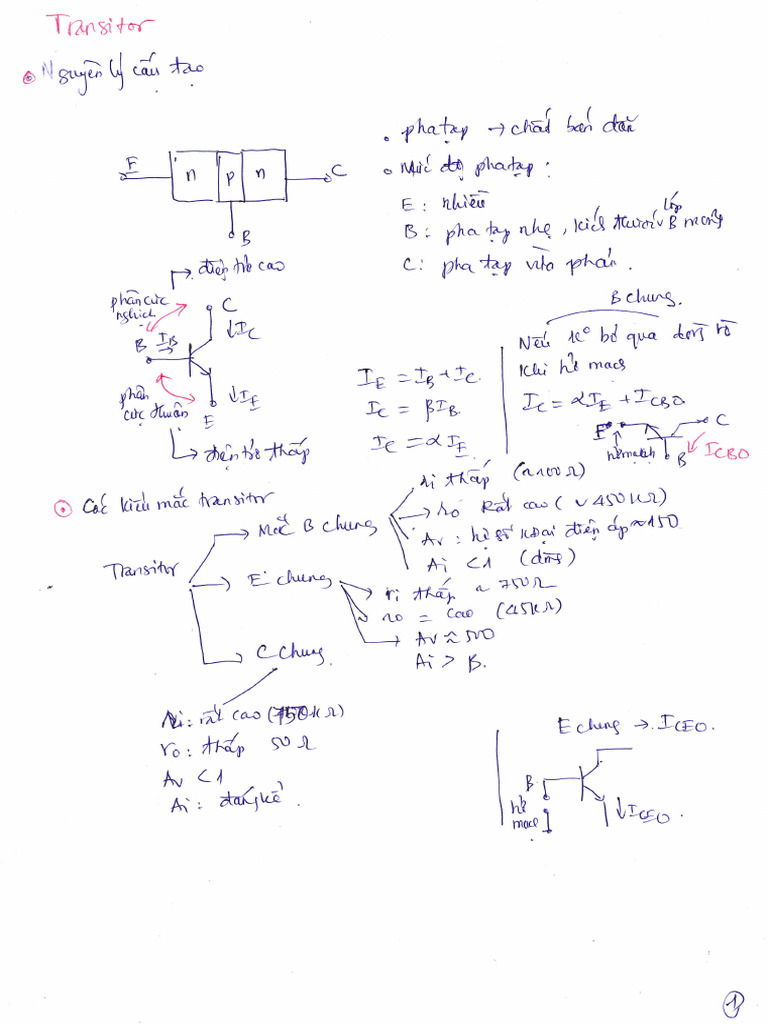 Transitor
Nguyên lý cấu tạo
E n p n C
B
• pha tạp → chất bán dẫn
• Mức độ pha tạp:
E: nhiều
B: pha tạp nhẹ, kích thước lớp B mỏng
C: pha tạp vừa phải.
điện trở cao
phân cực nghịch
C
↓IC
B IB
phân cực thuận
↓IE
E
điện trở thấp
IE = IB + IC.
IC = βIB.
IC = αIE
B chung.
Nếu ko bỏ qua dòng rò
khi hở mạch
IC = αIE + ICBO
E C
hở mạch B ICBO
Các kiểu mắc transitor
Transitor
Mắc B chung
ri thấp (~100Ω)
ro rất cao (~450KΩ)
Av: hệ số khuếch đại điện áp ≈150
Ai <1 (dòng)
E chung
ri thấp ~ 750Ω
ro = cao (45KΩ)
Av ≈ 500
Ai > B.
C chung
ri: rất cao (750KΩ)
ro: thấp 50Ω
Av <1
Ai: đáng kể.
E chung → ICEO.
B
hở mạch
↓ICEO.
1